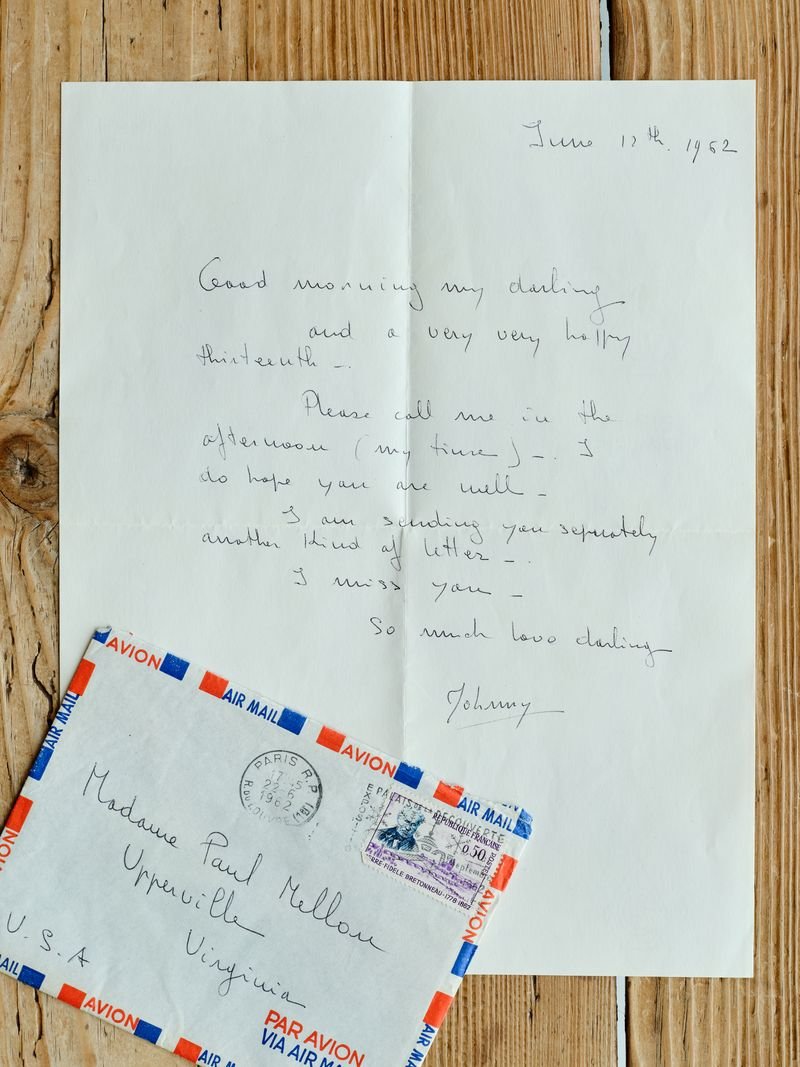 June 13th. 1962
Good morning my darling
and a very very happy
thirteenth _.
Please call me in the
afternoon (my time) _. I
do hope you are well _
I am sending you seperately
another kind of letter _.
I miss you _
So much love darling
Johnny
AVION
AIR MAIL
AVION
AIR MAIL
AIR MAIL
PARIS R.P.
1962
R. DU LOUVRE (1er)
PALAIS DE LA DECOUVERTE
REPUBLIQUE FRANÇAISE
0,50
POSTES
BRETONNEAU-1778-1862
Madame Paul Mellon
Upperville
Virginia
U.S.A
AVION
AVION
AIR MAIL
PAR AVION
VIA AIR MAIL
AVION
AIR MAIL
AIR MAIL